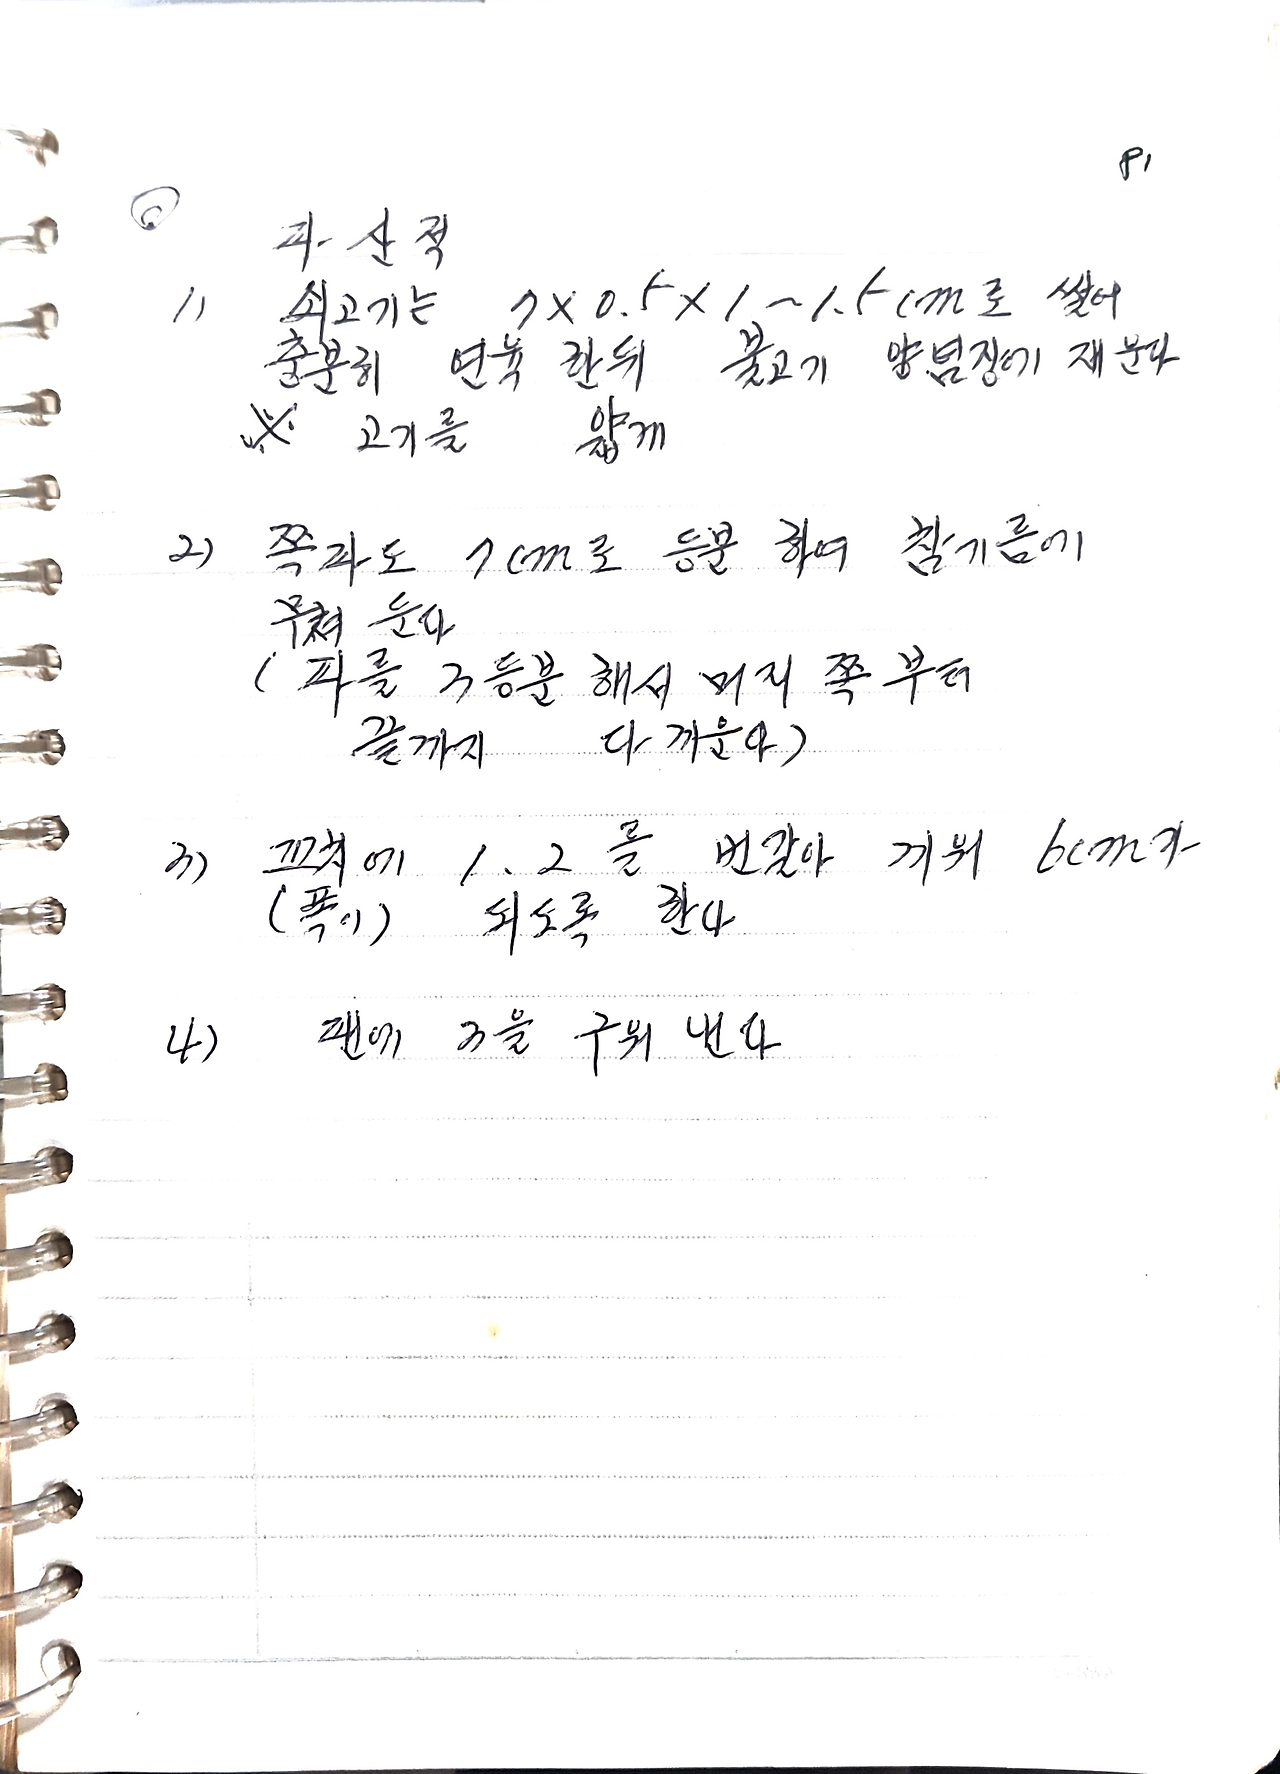 81
파 산적
1) 쇠고기는 7×0.5×1~1.5cm로 썰어
충분히 연육 한뒤 불고기 양념장에 재운다
※ 고기를 얇게
2) 쪽파도 7cm로 등분 하여 참기름에
무쳐 둔다
(파를 3등분 해서 머리 쪽 부터
끝까지 다 끼운다)
3) 꼬치에 1.2를 번갈아 끼워 6cm가
(폭이) 되도록 한다
4) 팬에 3을 구워 낸다